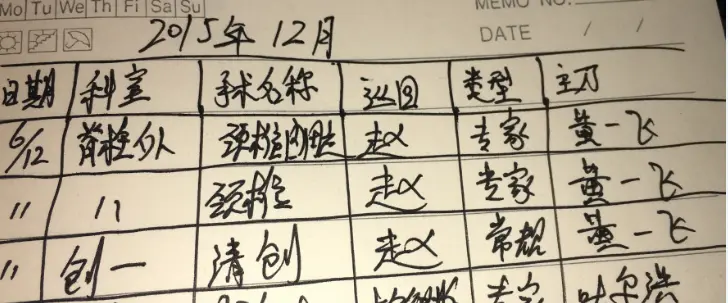 Mo Tu We Th Fri Sa Su
MEMO NO.
DATE / /
2015年12月
日期 科室 手术名称 巡回 类型 主刀
6/12 脊柱外 颈椎 赵 专家 黄一飞
〃 〃 颈椎 赵 专家 黄一飞
〃 创一 清创 赵 常规 黄一飞
专家